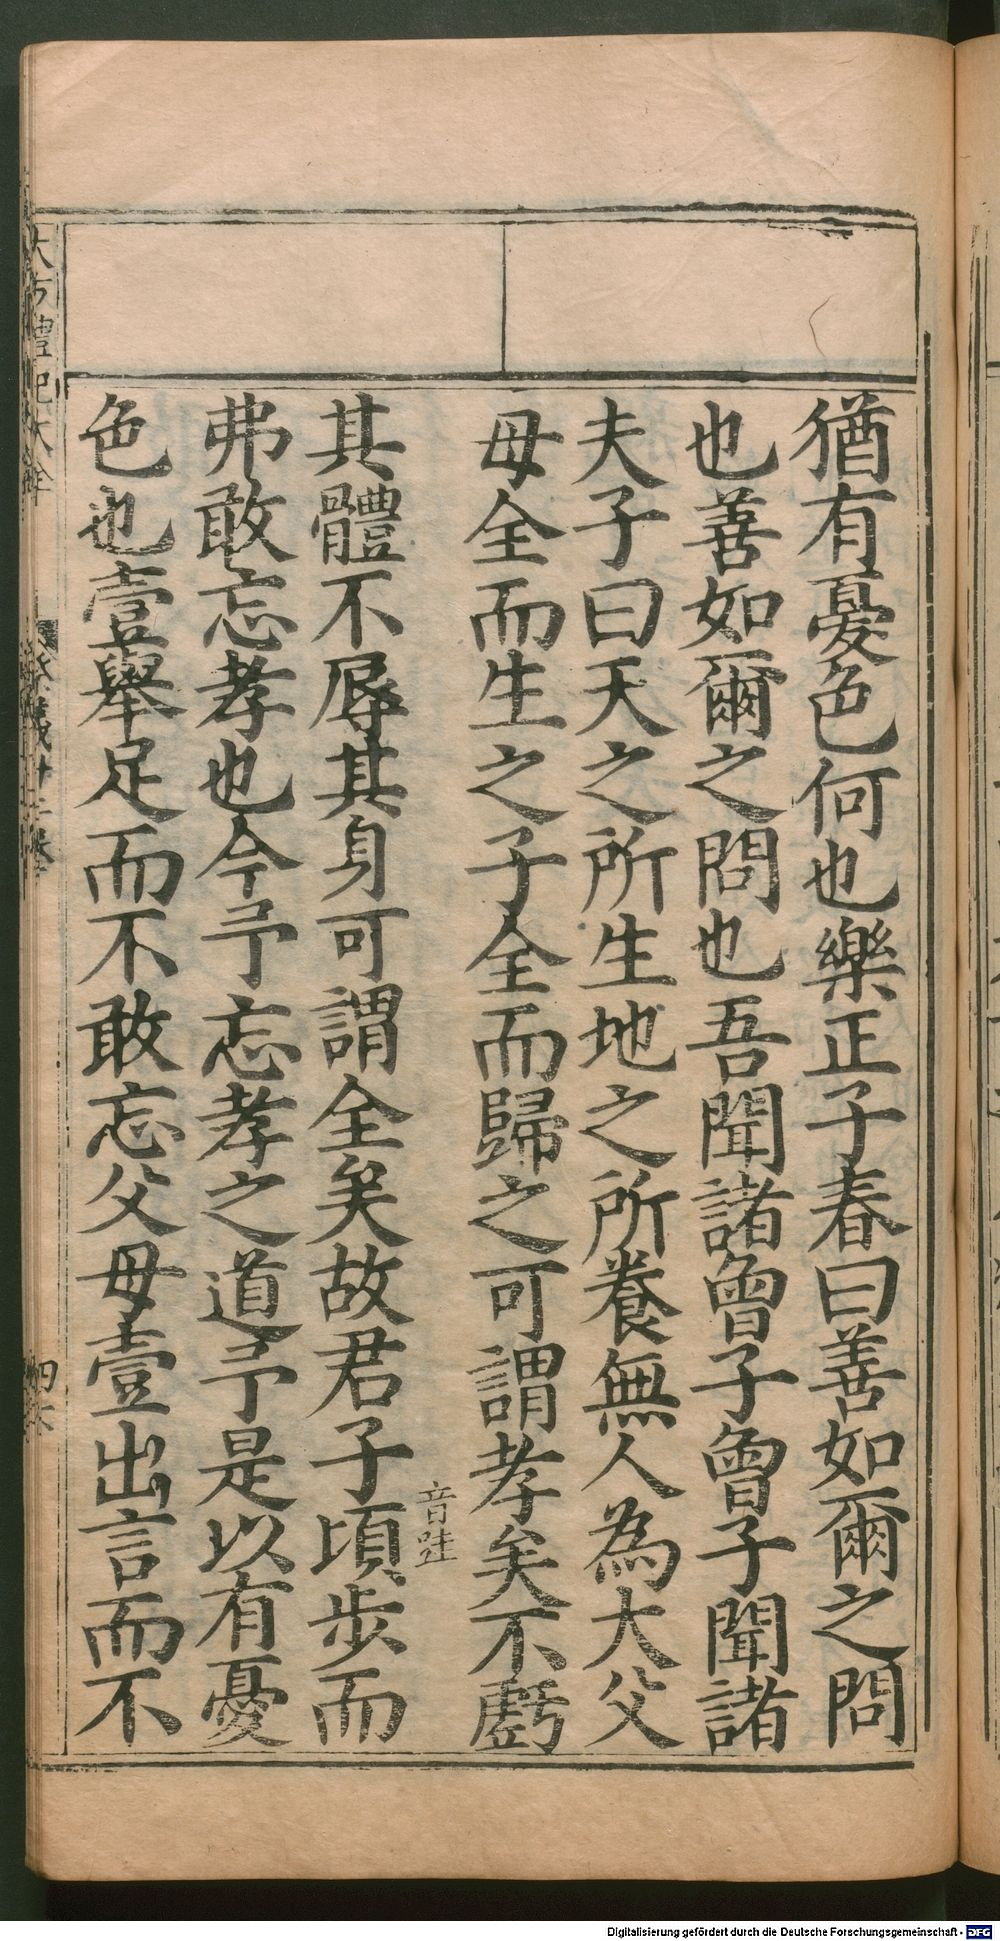 猶有憂色何也樂正子春曰善如爾之問
也善如爾之問也吾聞諸曾子曾子聞諸
夫子曰天之所生地之所養無人為大父
母全而生之子全而歸之可謂孝矣不虧
音跬
其體不辱其身可謂全矣故君子頃步而
弗敢忘孝也今予忘孝之道予是以有憂
色也壹舉足而不敢忘父母壹出言而不
Digitalisierung gefördert durch die Deutsche Forschungsgemeinschaft - DFG